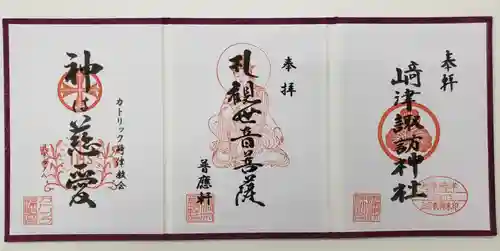 奉拝
﨑津諏訪神社
奉拝
礼観世音菩薩
普應軒
カトリック﨑津教会
神は慈愛